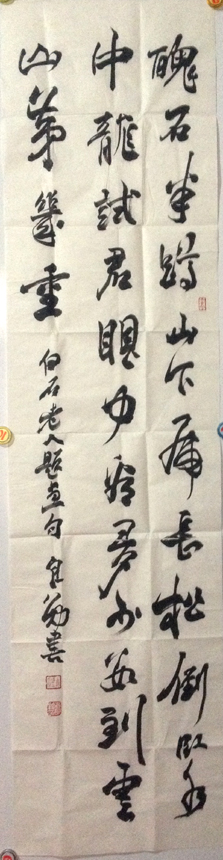 醜石半蹲山下虎長松倒臥水
中龍試君眼力看多少數到雲
山第幾重
白石老人題畫句 書